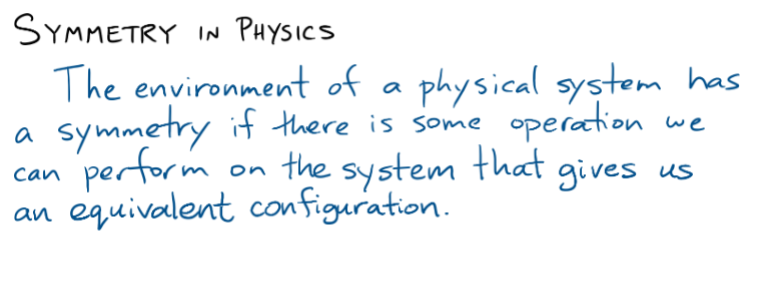 SYMMETRY IN PHYSICS
The environment of a physical system has
a symmetry if there is some operation we
can perform on the system that gives us
an equivalent configuration.